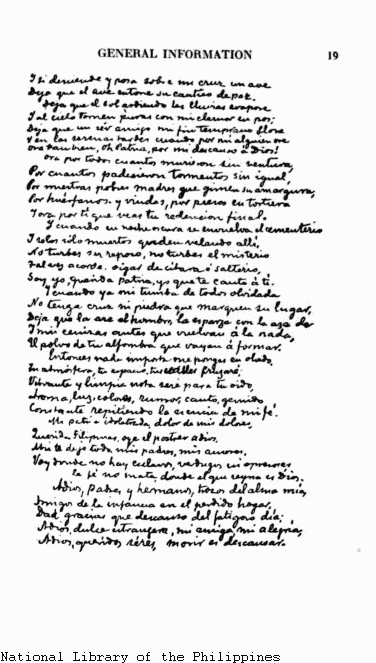 GENERAL INFORMATION 19
Y si desciende y posa sobre mi cruz un ave
Deja que el ave entone su cantico de paz.
Deja que el sol ardiendo las lluvias evapore
Y al cielo tornen puras con mi clamor en pos;
Deja que un sér amigo mi fin temprano llore
Y en las serenas tardes cuando por mi alguien ore
Ora tambien, oh Patria, por mi descanso á Dios!
Ora por todos cuantos murieron sin ventura,
Por cuantos padecieron tormentos sin igual,
Por nuestras pobres madres que gimen su amargura,
Por huérfanos y viudas, por presos en tortura
Y ora por ti que veas tu redencion final.
Y cuando en noche oscura se envuelva el cementerio
Y solos sólo muertos queden velando allí,
No turbes su reposo, no turbes el misterio
Tal vez acordes oigas de citara ó salterio,
Soy yo, querida Patria, yo que te canto á ti.
Y cuando ya mi tumba de todos olvidada
No tenga cruz ni piedra que marquen su lugar,
Deja que la are el hombre, la esparza con la azada
Y mis cenizas antes que vuelvan á la nada,
El polvo de tu alfombra que vayan á formar.
Entonces nada importa me pongas en olvido,
Tu atmósfera, tu espacio, tus valles cruzaré,
Vibrante y limpia nota seré para tu oido,
Aroma, luz, colores, rumor, canto, gemido
Constante repitiendo la esencia de mi fé.
Mi patria idolatrada, dolor de mis dolores,
Querida Filipinas, oye el postrer adios.
Ahi te dejo todo, mis padres, mis amores.
Voy donde no hay esclavos, verdugos ni opresores
Donde la fé no mata, donde el que reyna es Dios.
Adios, padres y hermanos, trozos del alma mia,
Amigos de la infancia en el perdido hogar,
Dad gracias que descanso del fatigoso dia;
Adios, dulce estrangera, mi amiga, mi alegria,
Adios, queridos séres, morir es descansar.
National Library of the Philippines